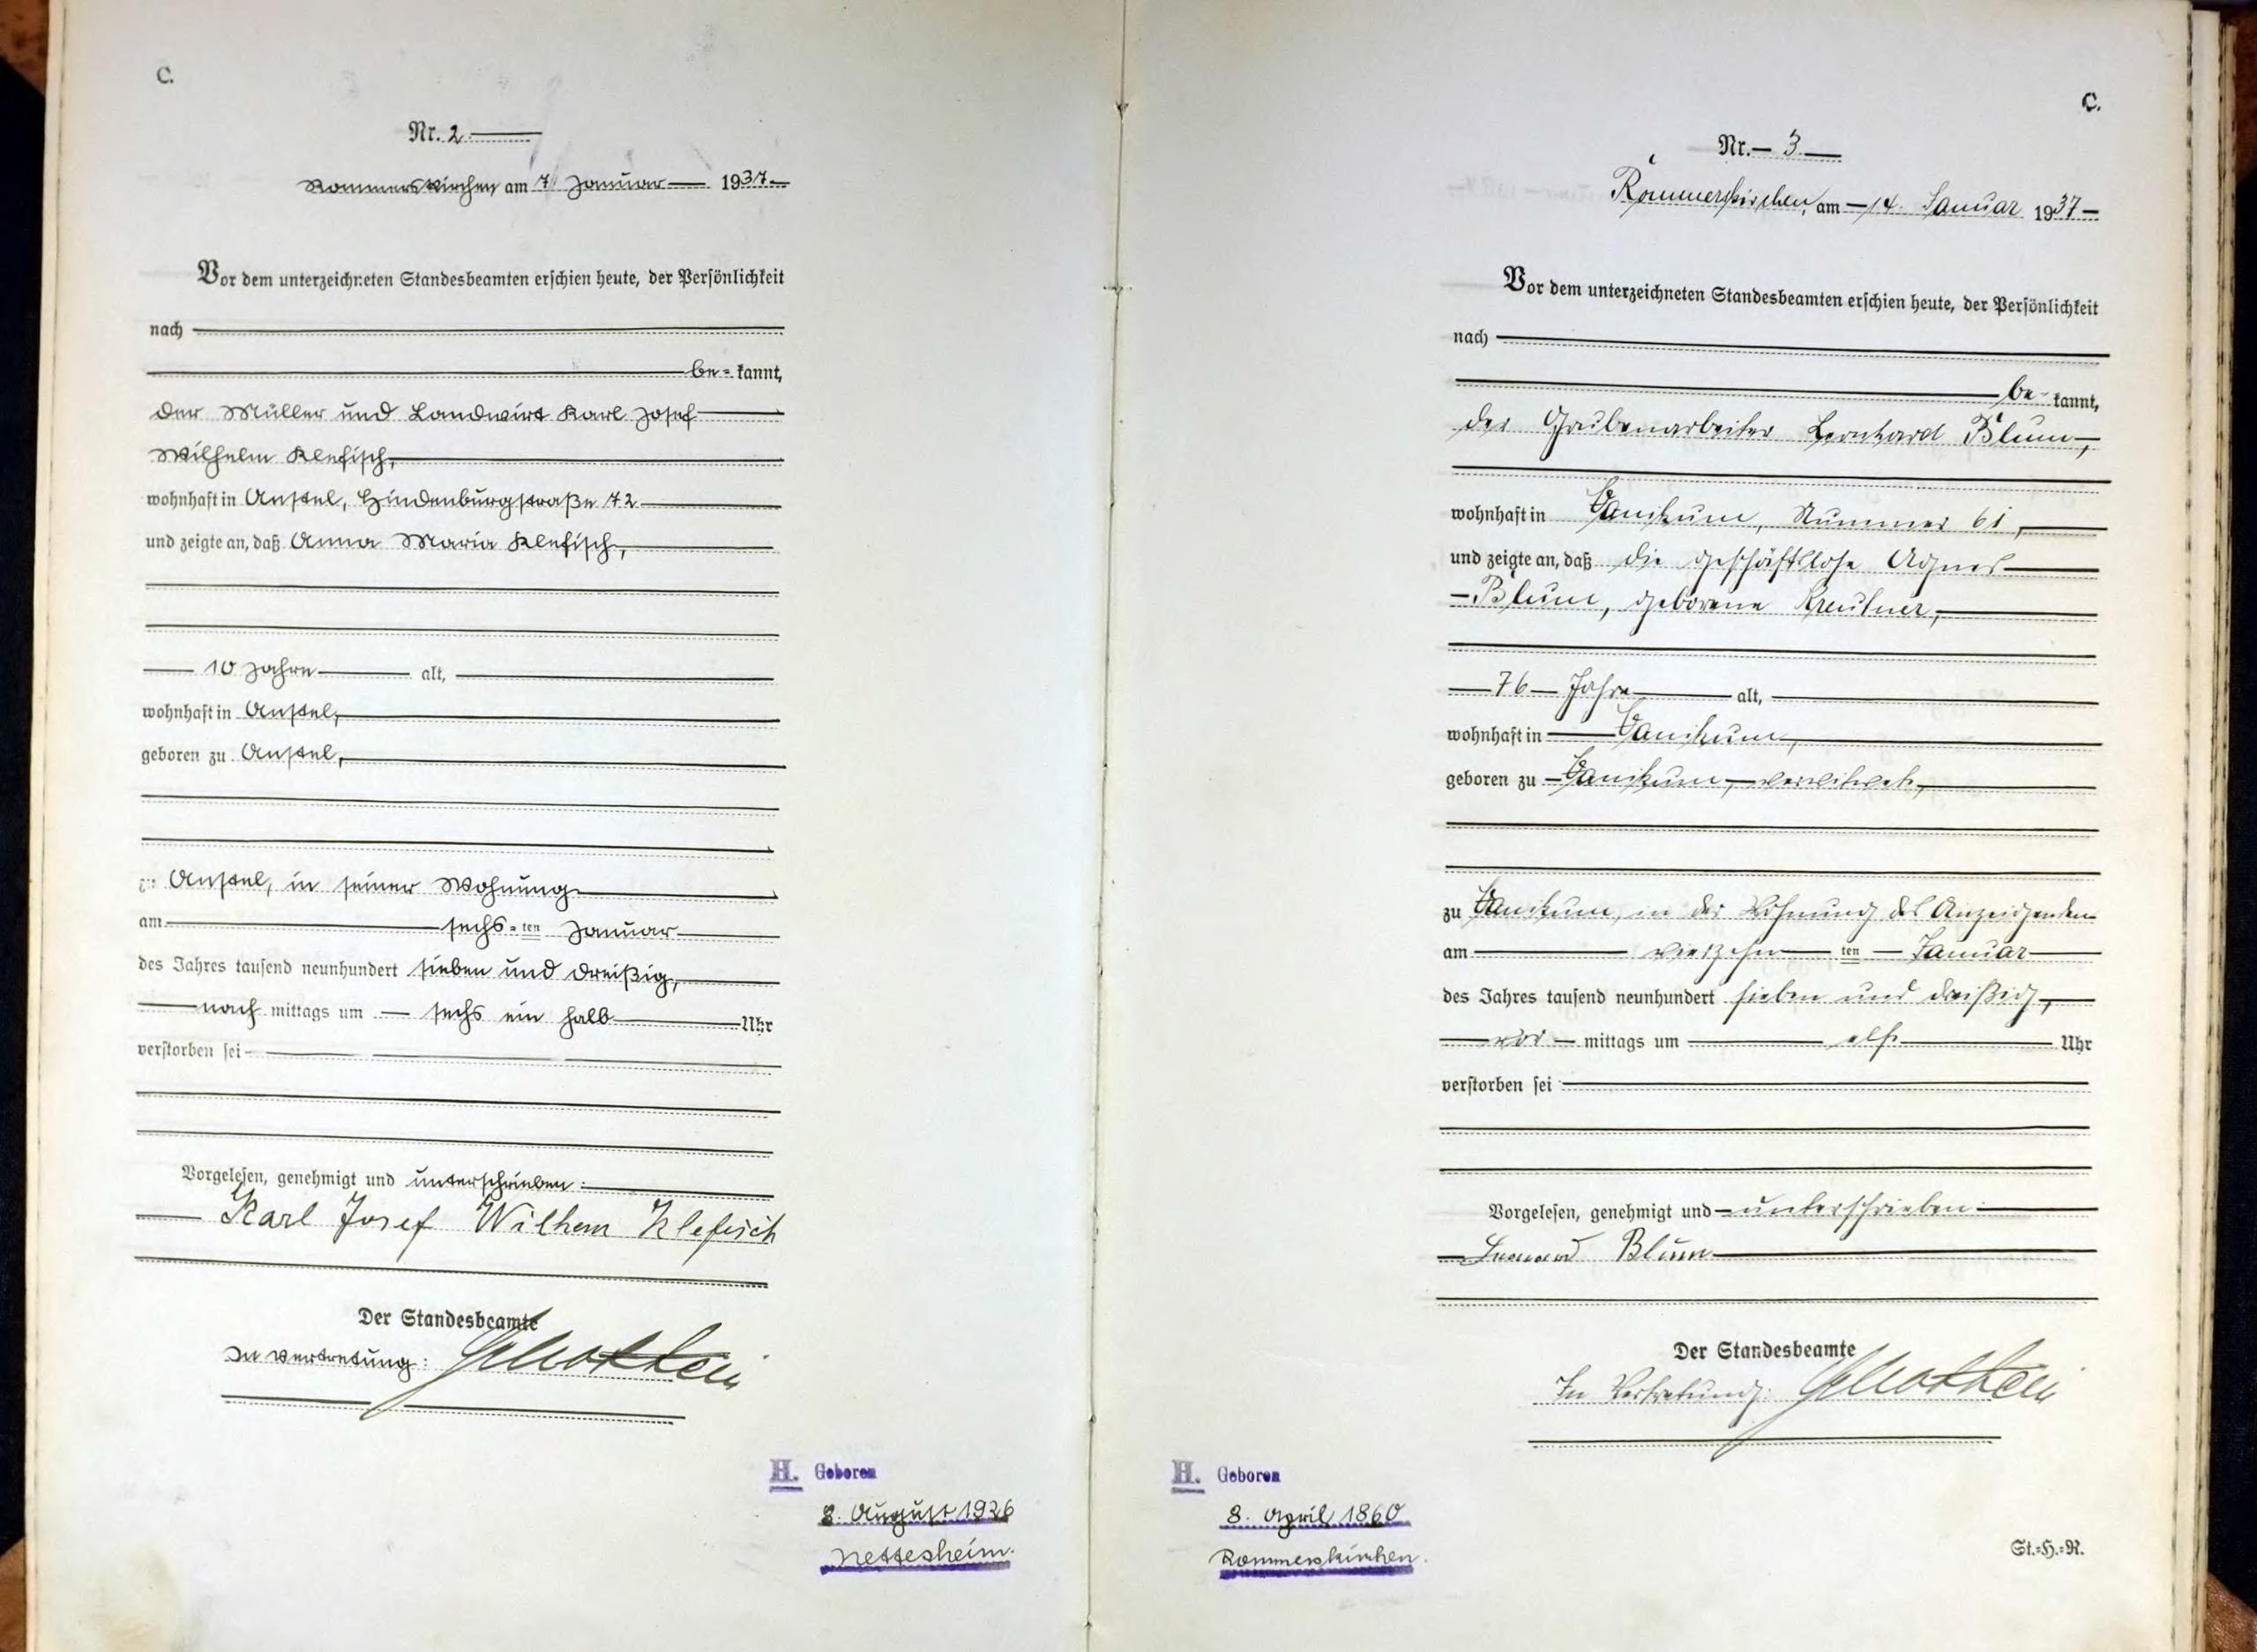 C.
Nr. 2
Rommerskirchen am 7. Januar 1937
Vor dem unterzeichneten Standesbeamten erschien heute, der Persönlichkeit
nach
be-kannt,
der Müller und Landwirt Karl Josef
Wilhelm Klefisch,
wohnhaft in Anstel, Hindenburgstraße 72
und zeigte an, daß Anna Maria Klefisch,
10 Jahre alt,
wohnhaft in Anstel,
geboren zu Anstel,
zu Anstel, in seiner Wohnung
am sechs-ten Januar
des Jahres tausend neunhundert sieben und dreißig,
nach mittags um sechs ein halb Uhr
verstorben sei
Vorgelesen, genehmigt und unterschrieben:
Karl Josef Wilhem Klefisch
Der Standesbeamte
In Vertretung:
H. Geboren
8. August 1926
Nettesheim.
C.
Nr. 3
Rommerskirchen, am 14. Januar 1937
Vor dem unterzeichneten Standesbeamten erschien heute, der Persönlichkeit
nach
be-kannt,
der Grubenarbeiter Leonhard Blum,
wohnhaft in Vanikum, Nummer 61,
und zeigte an, daß die geschäftslose Agnes
Blum, geborene Kreutner,
76 Jahre alt,
wohnhaft in Vanikum,
geboren zu Vanikum, verwitwet,
zu Vanikum, in der Wohnung des Anzeigenden
am vierzehn ten Januar
des Jahres tausend neunhundert sieben und dreißig,
vor mittags um elf Uhr
verstorben sei
Vorgelesen, genehmigt und unterschrieben
Blum
Der Standesbeamte
In Vertretung:
H. Geboren
8. April 1860
Rommerskirchen.
St.-H.-R.